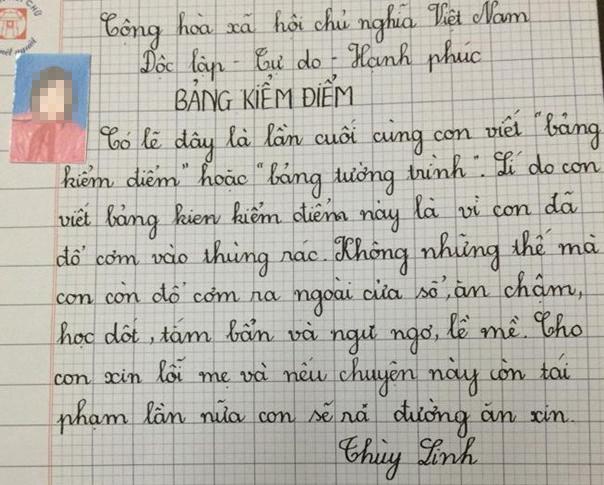 Cộng hòa xã hội chủ nghĩa Việt Nam
Dộc lập - Tự do - Hạnh phúc
BẢNG KIỂM ĐIỂM
Có lẽ dây là lần cuối cùng con viết "bảng
kiểm diểm" hoặc "bảng tường trình". Lí do con
viết bảng kien kiểm diểm này là vì con đã
đổ cơm vào thùng rác. Không những thế mà
con còn đổ cơm ra ngoài cửa sổ, ăn chậm,
học dốt, tắm bẩn và ngư ngơ, lề mề. Cho
con xin lỗi mẹ và nếu chuyện này còn tái
phạm lần nữa con sẽ rả đường ăn xin.
Thùy Linh